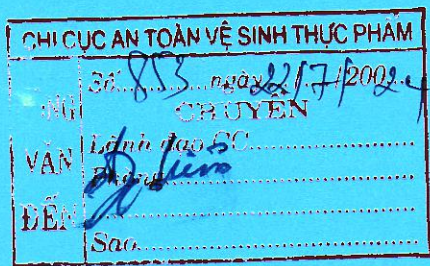 CHI CỤC AN TOÀN VỆ SINH THỰC PHẨM
VĂN
ĐẾN
Số 853 ngày 22/7/2002
CHUYỂN
Lãnh đạo CC
Phòng
Sao